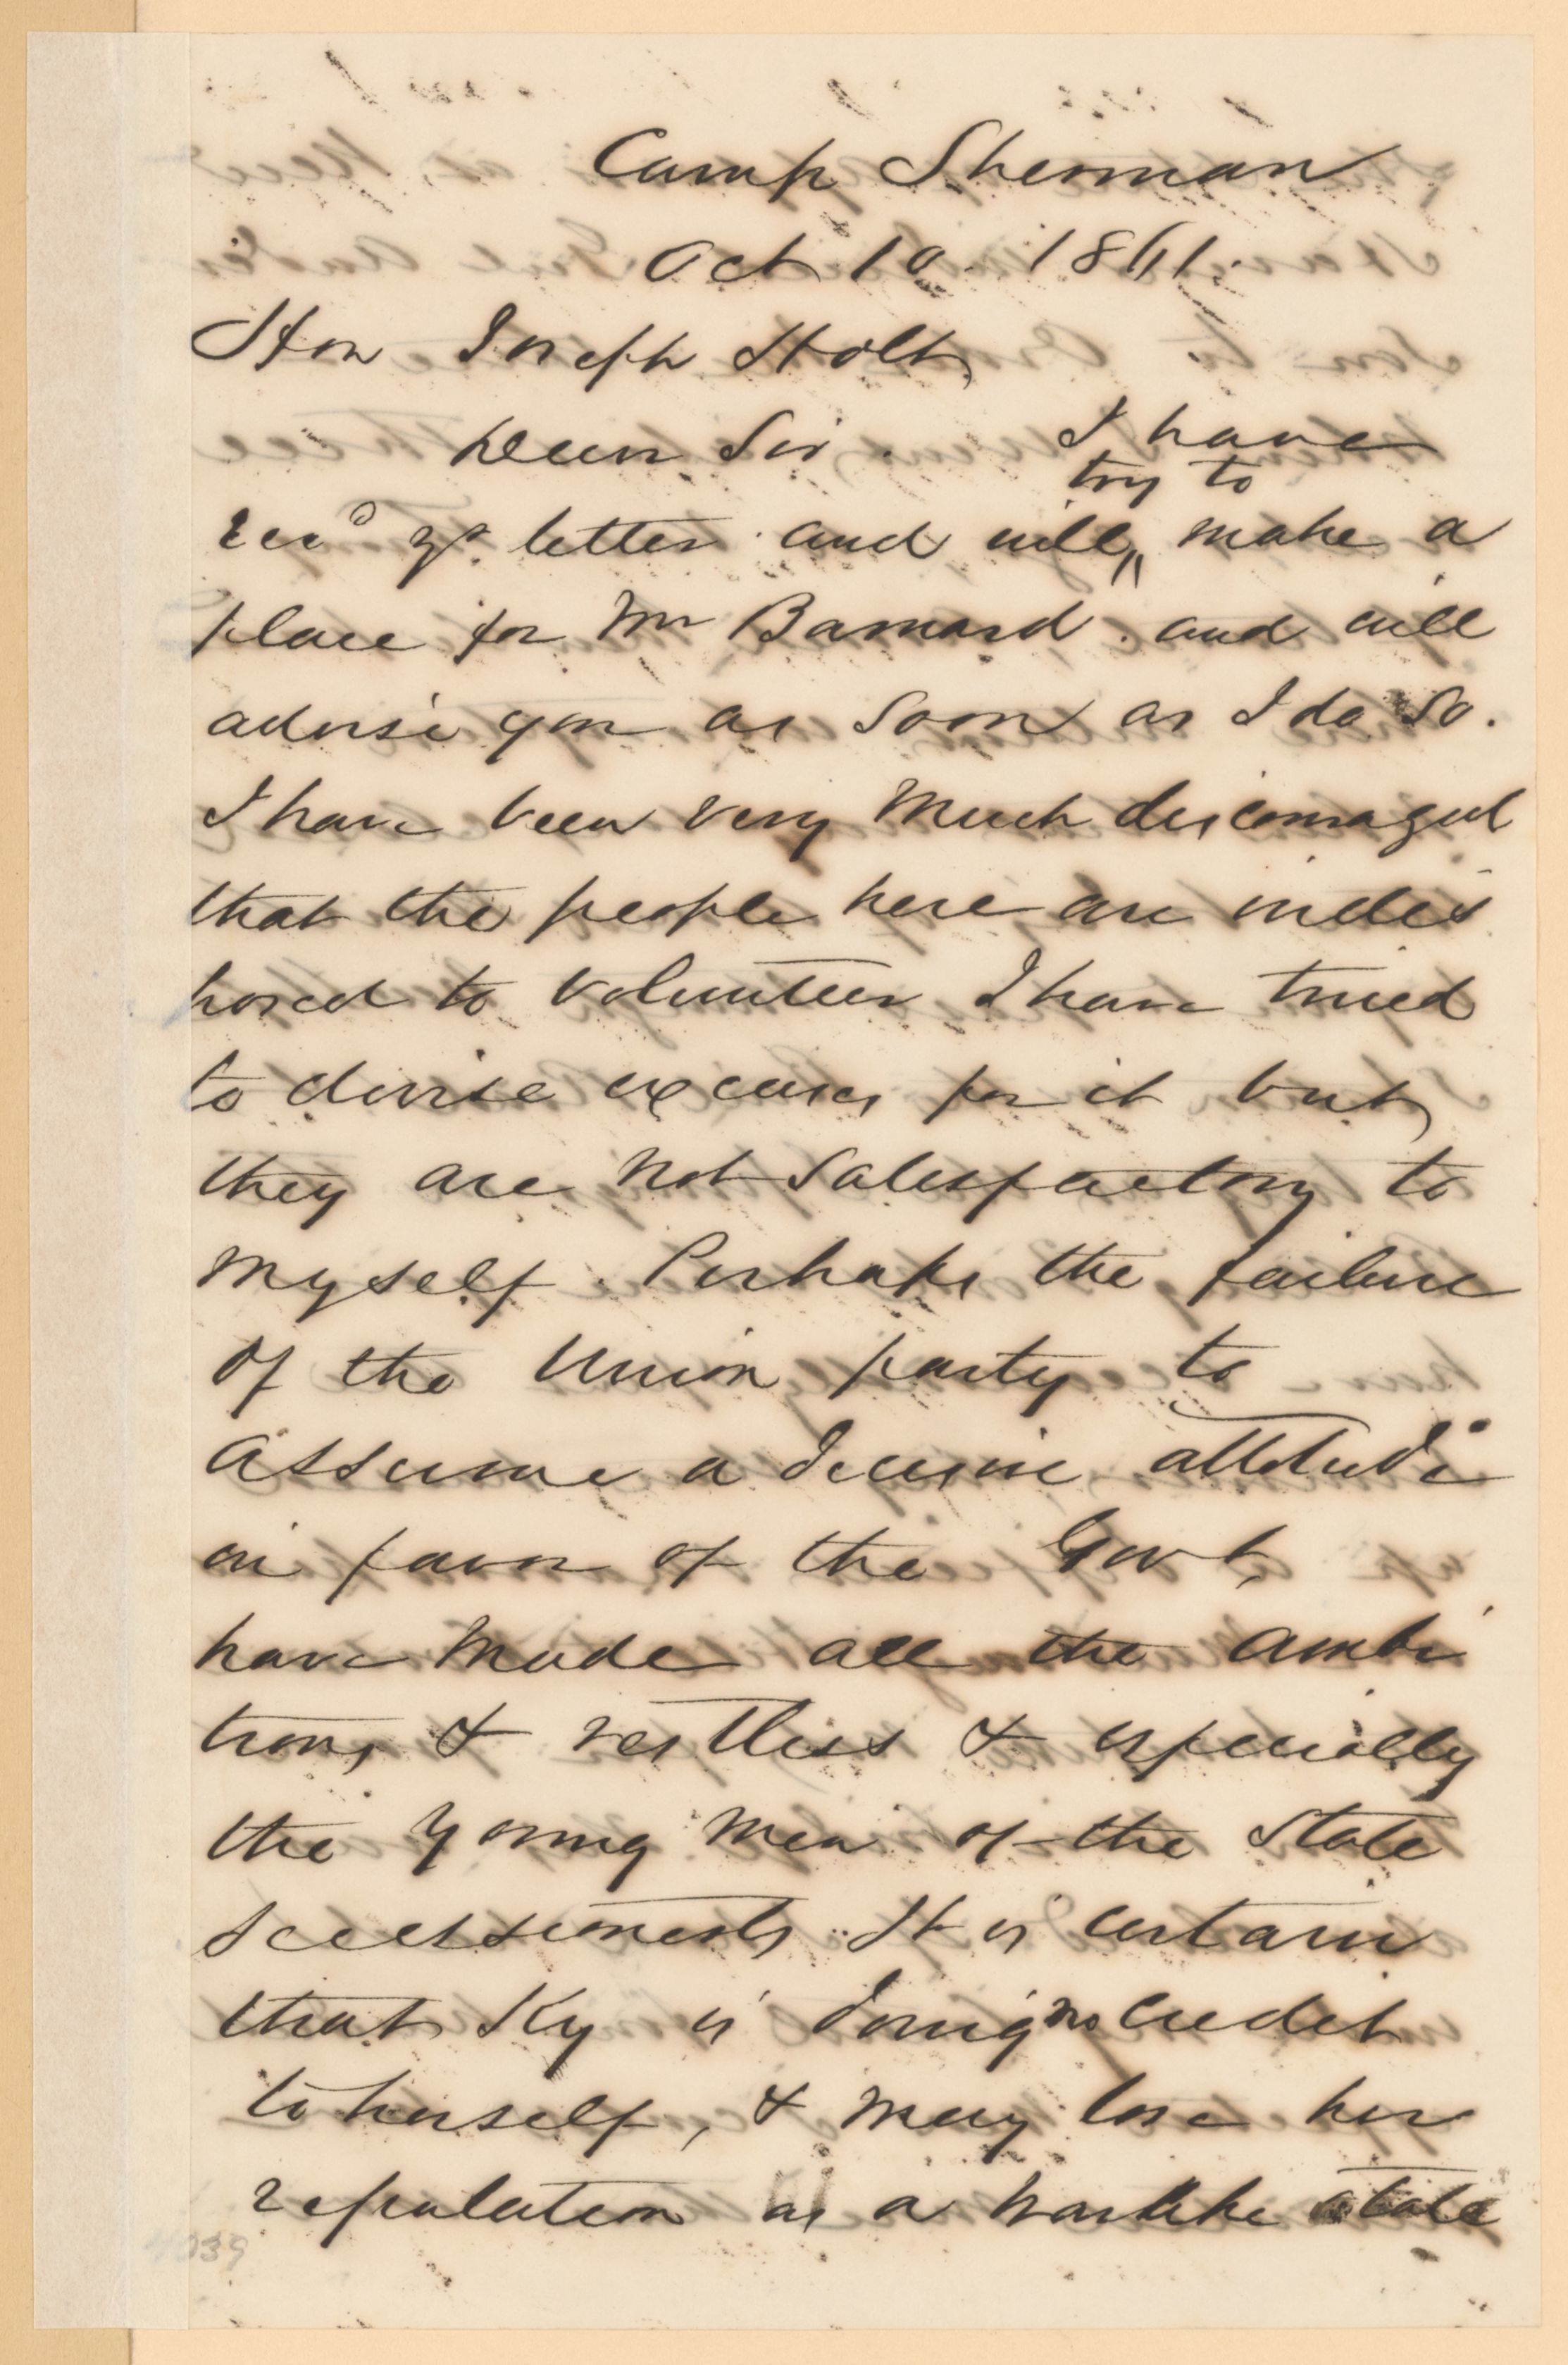 Camp Sherman
Oct 10. 1861.
Hon Joseph Holt
Dear Sir. I have
try to
recd yr. letter and will make a
place for Mr Barnard. and will
advise you as soon as I do so.
I have been very much discouraged
that the people here are indis
posed to volunteer I have tried
to devise excuses for it but
they are not satisfactory to
myself. Perhaps the failure
of the Union party to
assume a decisive attitude
in favor of the Govt,
have made all the ambi
tious & restless & especially
the young men of the State
secessionists. It is certain
that Ky is doing no credit
to herself, & may lose her
reputation as a warlike state